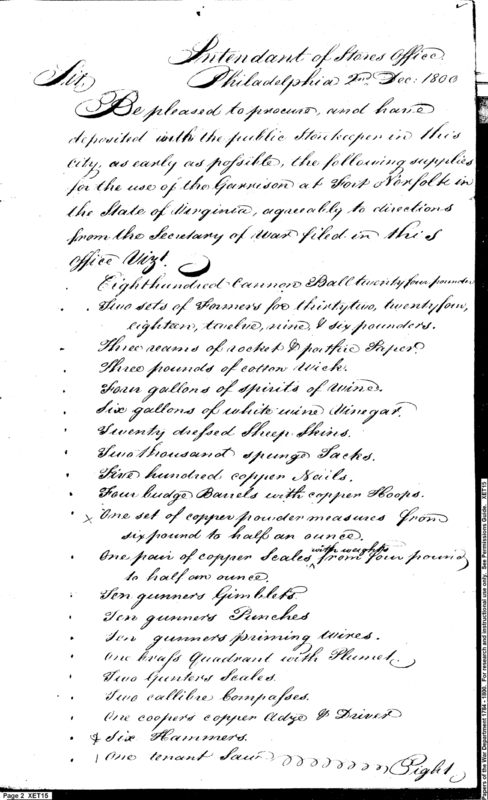 Intendant of Stores Office
Philadelphia 2nd Dec: 1800
Sir,
Be pleased to procure, and have
deposited with the public Storekeeper in this
City, as early as possible, the following supplies
for the use of the Garrison at Fort Norfolk in
the State of Virginia, agreeably to directions
from the Secretary of War filed in this
Office Vizt.
Eight hundred Cannon Ball twenty four pounder
Two sets of Formers for thirty two, twenty four,
eighteen, twelve, nine, & six pounders.
Three reams of rocket & portfire Paper.
Three pounds of cotton Wick.
Four gallons of spirits of Wine.
Six gallons of white wine Vinegar.
Twenty dressed Sheep Skins.
Two thousand spunge Tacks.
Five hundred copper Nails.
Four budge Barrels with copper Hoops.
x One set of copper powder measures from
six pound to half an ounce.
One pair of copper Scales with weights from four pound
to half an ounce.
Ten gunners Gimblets
Ten gunners Punches
Ten gunners priming Wires.
One brass Quadrant with Plumet.
Two Gunters Scales.
Two callibre Compasses.
One coopers copper Adze & Driver
Six Hammers.
One tenant Saw
Eight
Page 2 XET15
Papers of the War Department 1784 - 1800. For research and instructional use only. See Permissions Guide. XET15